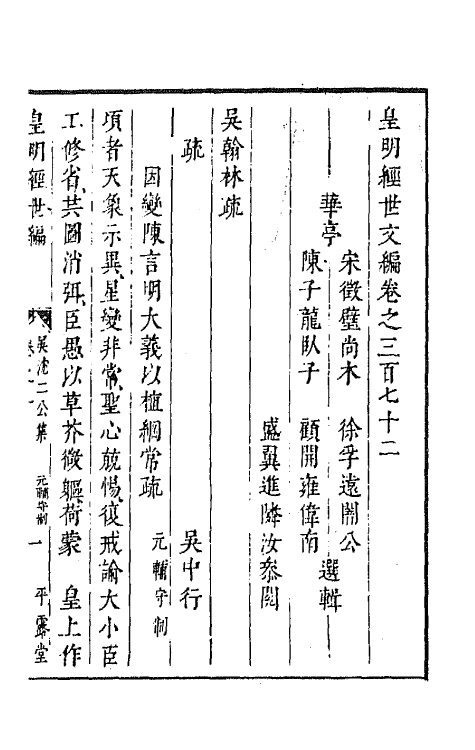 皇明經世文編卷之三百七十二
華亭
宋徵璧尚木
徐孚遠闇公
陳子龍臥子
顧開雍偉南
選輯
盛翼進隣汝叅閱
吳翰林疏
疏
吳中行
因變陳言明大義以植綱常疏
元輔守制
項者天象示異星變非常聖心兢惕復戒諭大小臣
工修省共圖消弭臣愚以草芥微軀荷蒙　皇上作
皇明經世編
吳沈二公集
元輔守制
一
平露堂